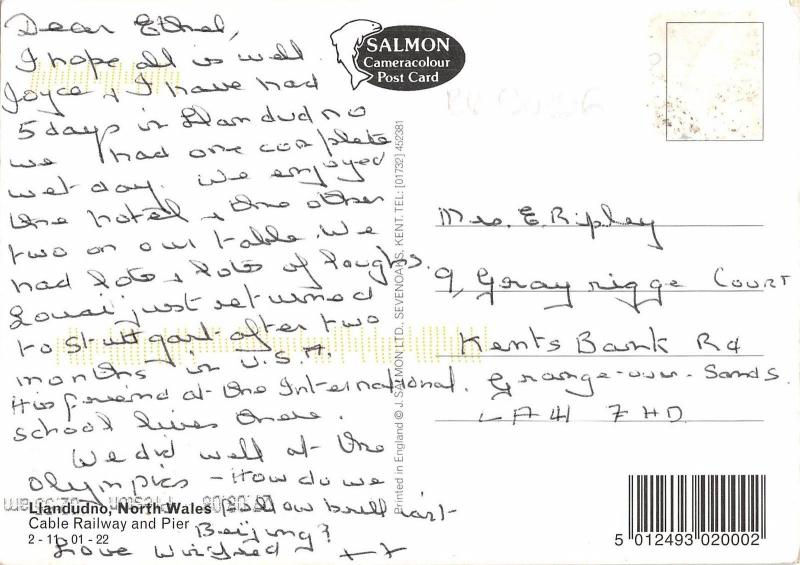 Dear Ethel,
I hope all is well.
Joyce & I have had
5 days in Llandudno
we had one complete
wet day. We enjoyed
the hotel & the other
two on our table. We
had lots & lots of laughs.
just returned
to Stuttgart after two
months in U.S.A.
His friend at the International
school lives there.
We did well at the
Olympics - How do we
follow brilliant
Beijing?
Love Winifred xx
SALMON
Cameracolour
Post Card
Printed in England © J. SALMON LTD., SEVENOAKS, KENT. TEL: [01732] 452381
Mrs. E. Ripley
9, Grayrigge Court
Kents Bank Rd
Grange-over-Sands.
LA11 7HD
Llandudno, North Wales
Cable Railway and Pier
2 - 11 - 01 - 22
5 012493 020002